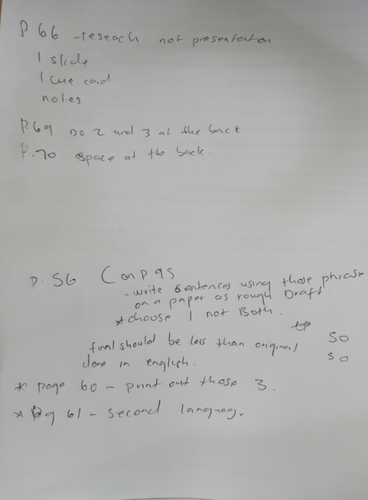 P 66 - reseach not presentation
1 slide
1 cue card
notes
P.69 Do 2 and 3 at the back
P.70 space at the back.
P. 56 Conp 95
- write sentences using those phrases
on a paper as rough Draft.
* choose 1 not Both.
final should be less than original 50
done in english. 50
* page 60 - print out those 3.
* Pg 61 - second languag.